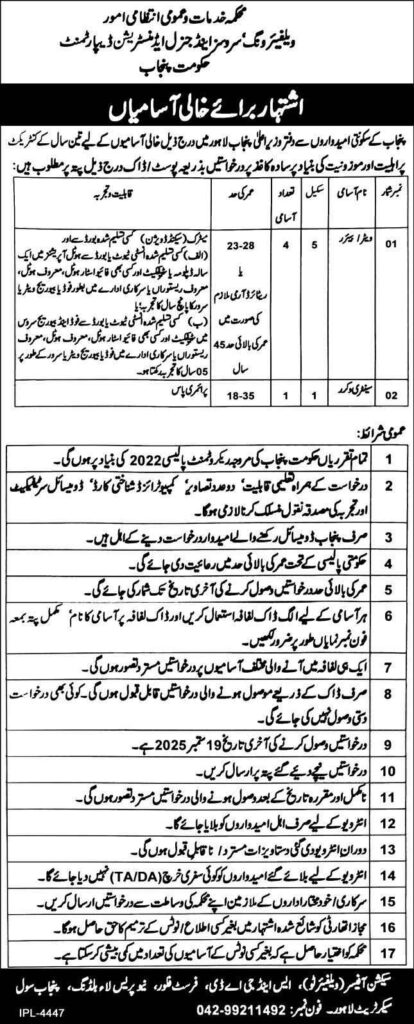 محکمہ خدمات و عمومی انتظامی امور
ویلفیئر ونگ، سروسز اینڈ جنرل ایڈمنسٹریشن ڈیپارٹمنٹ
حکومت پنجاب
اشتہار برائے خالی آسامیاں
پنجاب کے سکونتی امیدواروں سے دفتر وزیر اعلیٰ پنجاب لاہور میں درج ذیل خالی آسامیوں کے لیے تین سال کے کنٹریکٹ
پر اہلیت اور موزونیت کی بنیاد پر سادہ کاغذ پر درخواستیں بذریعہ پوسٹ/ڈاک درج ذیل پتہ پر مطلوب ہیں:
نمبر شمار نام آسامی سکیل تعداد آسامی عمر کی حد قابلیت و تجربہ
01 ویٹر/بیئرر 5 4 23-28 یا ریٹائرڈ آرمی ملازم کی صورت میں عمر کی بالائی حد 45 سال
میٹرک (سیکنڈ ڈویژن) کسی تسلیم شدہ بورڈ سے اور
(الف) کسی تسلیم شدہ انسٹی ٹیوٹ یا بورڈ سے ہوٹل آپریشنز میں ایک
سالہ ڈپلومہ یا سرٹیفکیٹ اور کسی بھی فائیو اسٹار ہوٹل، معروف ہوٹل،
معروف ریستوراں یا سرکاری ادارے میں بطور فوڈ یا بیوریج ویٹر یا
سرور کا پانچ سال کا تجربہ؛ یا
(ب) کسی تسلیم شدہ انسٹی ٹیوٹ یا بورڈ سے فوڈ اینڈ بیوریج سروس
میں سرٹیفکیٹ اور کسی بھی فائیو اسٹار ہوٹل، معروف ہوٹل، معروف
ریستوراں یا سرکاری ادارے میں فوڈ یا بیوریج ویٹر یا سرور کے طور پر
05 سال کا تجربہ رکھتا ہو۔
02 سینٹری ورکر 1 1 18-35 پرائمری پاس
عمومی شرائط:
1 تمام تقرریاں حکومت پنجاب کی مروجہ ریکروٹمنٹ پالیسی 2022 کی بنیاد پر ہوں گی۔
2 درخواست کے ہمراہ تعلیمی قابلیت، دو عدد تصاویر، کمپیوٹرائزڈ شناختی کارڈ، ڈومیسائل سرٹیفکیٹ
اور تجربہ کی مصدقہ نقول منسلک کرنا لازمی ہوگا۔
3 صرف پنجاب ڈومیسائل رکھنے والے امیدوار درخواست دینے کے اہل ہیں۔
4 حکومتی پالیسی کے تحت عمر کی بالائی حد میں رعایت دی جائے گی۔
5 عمر کی بالائی حد درخواستیں وصول کرنے کی آخری تاریخ تک شمار کی جائے گی۔
6 ہر آسامی کے لیے الگ ڈاک لفافہ استعمال کریں اور ڈاک لفافہ پر آسامی کا نام، مکمل پتہ بمعہ
فون نمبر نمایاں طور پر ضرور لکھیں۔
7 ایک ہی لفافہ میں آنے والی مختلف آسامیوں پر درخواستیں مسترد تصور ہوں گی۔
8 صرف ڈاک کے ذریعے موصول ہونے والی درخواستیں قابل قبول ہوں گی۔ کوئی بھی درخواست
دستی وصول نہیں کی جائے گی۔
9 درخواستیں وصول کرنے کی آخری تاریخ 19 ستمبر 2025 ہے۔
10 درخواستیں نیچے دیئے گئے پتہ پر ارسال کریں۔
11 نامکمل اور مقررہ تاریخ کے بعد وصول ہونے والی درخواستیں مسترد تصور ہوں گی۔
12 انٹرویو کے لیے صرف اہل امیدواروں کو بلایا جائے گا۔
13 دوران انٹرویو دی گئی دستاویزات مسترد/ ناقابل قبول ہوں گی۔
14 انٹرویو کے لیے بلائے گئے امیدواروں کو کوئی سفری خرچ (TA/DA) نہیں دیا جائے گا۔
15 سرکاری / خود مختار اداروں کے ملازمین اپنے محکمہ کی وساطت سے درخواستیں ارسال کریں۔
16 مجاز اتھارٹی کو شائع شدہ اشتہار میں بغیر کسی اطلاع / نوٹس کے ترمیم کا حق حاصل ہوگا۔
17 محکمہ کو اختیار حاصل ہے کہ بغیر کسی نوٹس کے آسامیوں کی تعداد میں کمی بیشی کر سکتا ہے۔
سیکشن آفیسر (ویلفیئر ٹو)، ایس اینڈ جی اے ڈی، فرسٹ فلور، نیو پریس لاء بلڈنگ، پنجاب سول
سیکرٹریٹ لاہور۔ فون نمبر: 042-99211492
IPL-4447